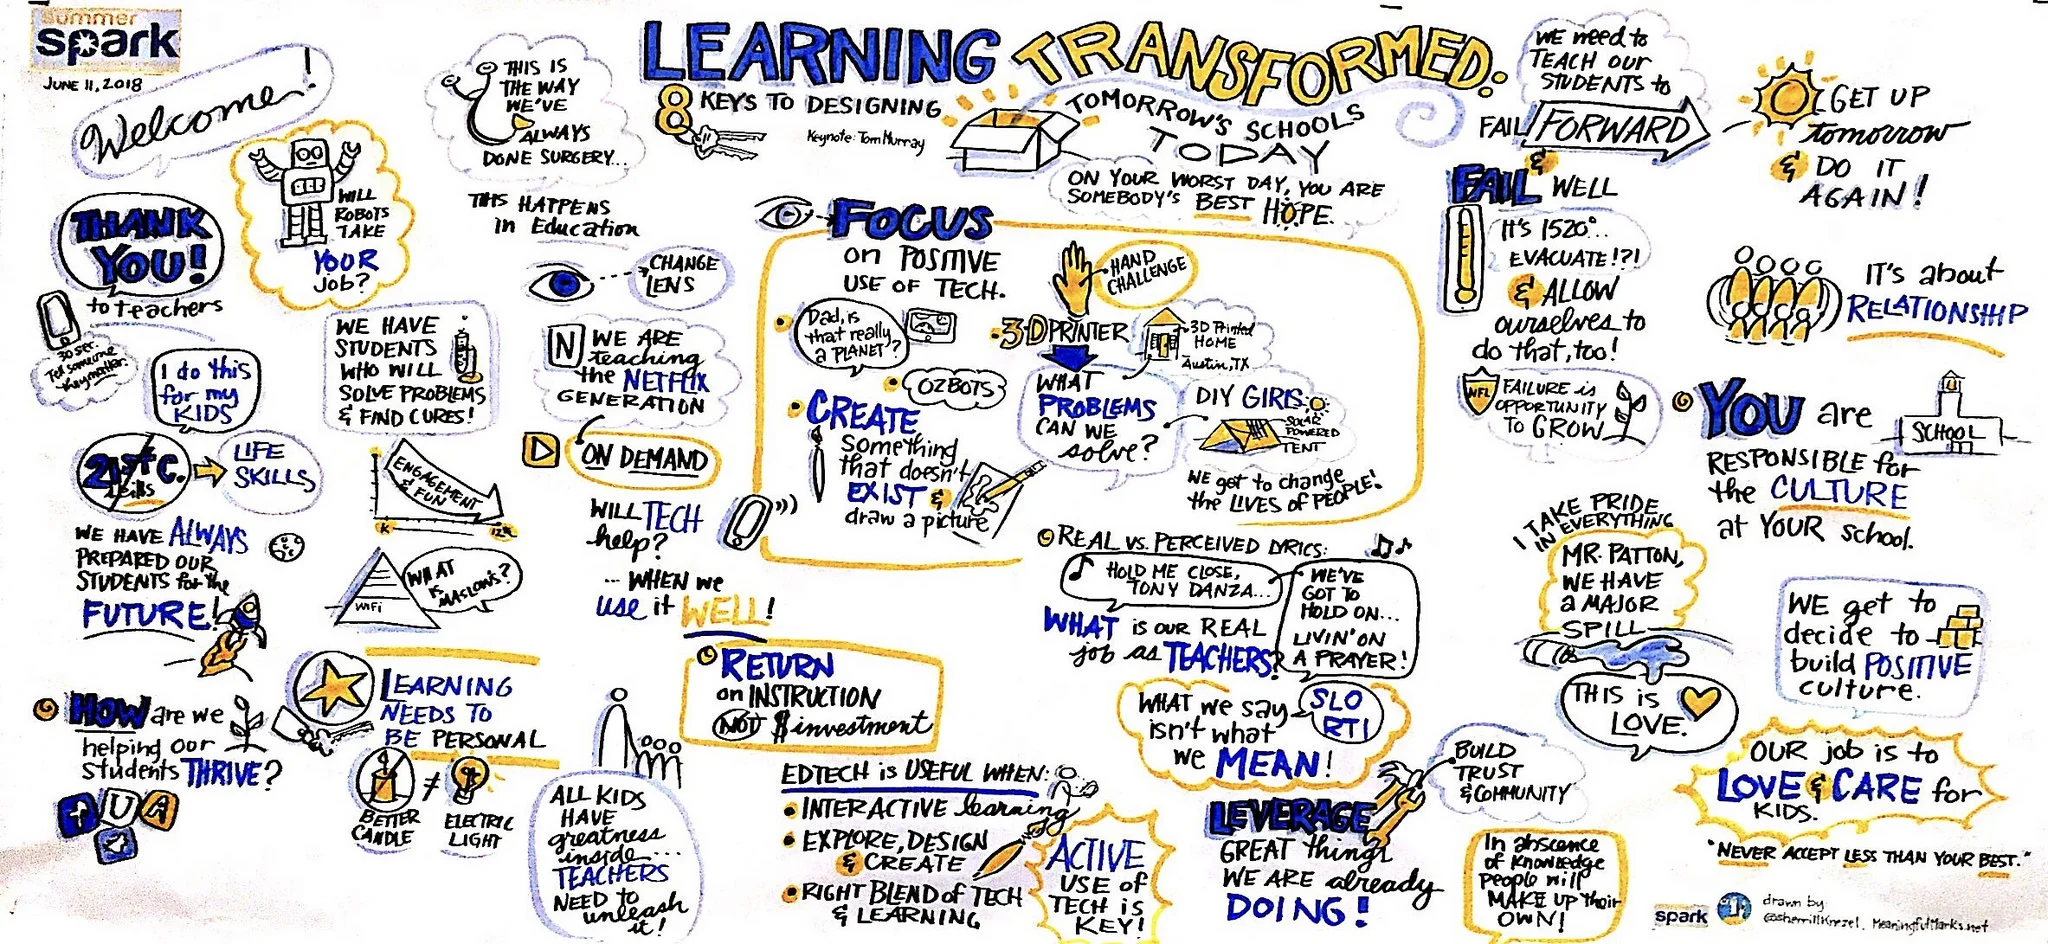 summer
spark
JUNE 11, 2018
Welcome!
THANK
YOU!
to teachers
30 sec.
Tell someone
they matter.
WILL
ROBOTS
TAKE
YOUR
job?
I do this
for my
KIDS
21st C.
skills
LIFE
SKILLS
WE HAVE ALWAYS
PREPARED OUR
STUDENTS for the
FUTURE!
HOW are we
helping our
students THRIVE?
WE HAVE
STUDENTS
WHO WILL
SOLVE PROBLEMS
& FIND CURES!
ENGAGEMENT
& FUN
K
12th
WHAT
is
MASLOW'S?
WiFi
LEARNING
NEEDS TO
BE PERSONAL
BETTER
CANDLE
≠
ELECTRIC
LIGHT
THIS IS
THE WAY
WE'VE
ALWAYS
DONE SURGERY...
THIS HAPPENS
in Education
CHANGE
LENS
N
WE ARE
teaching
the NETFLIX
GENERATION
ON DEMAND
WILL TECH
help?
... WHEN we
use it WELL!
ALL KIDS
HAVE
greatness
inside....
TEACHERS
NEED to
unleash
it!
LEARNING TRANSFORMED:
8 KEYS TO DESIGNING
TOMORROW'S SCHOOLS
TODAY
Keynote: Tom Murray
ON YOUR WORST DAY, YOU ARE
SOMEBODY'S BEST HOPE.
FOCUS
on POSITIVE
USE OF TECH.
HAND
CHALLENGE
Dad, is
that really
a PLANET?
OZBOTS
3-D PRINTER
3D Printed
HOME
Austin, TX
CREATE
something
that doesn't
EXIST &
draw a picture
WHAT
PROBLEMS
CAN WE
solve?
DIY GIRLS
SOLAR
POWERED
TENT
We get to change
the LIVES of PEOPLE!
RETURN
on INSTRUCTION
NOT $investment
EDTECH is USEFUL WHEN:
INTERACTIVE learning
EXPLORE, DESIGN
& CREATE
RIGHT BLEND of TECH
& LEARNING
ACTIVE
USE OF
TECH is
KEY!
REAL vs. PERCEIVED LYRICS:
HOLD ME CLOSE,
TONY DANZA...
WE'VE
GOT TO
HOLD ON...
LIVIN' ON
A PRAYER!
WHAT is our REAL
job as TEACHERS?
WHAT we say
isn't what
we MEAN!
SLO
RTI
LEVERAGE
GREAT things
WE ARE already
DOING!
BUILD
TRUST
& COMMUNITY
In abscence
of knowledge
people will
MAKE UP their
OWN!
WE need to
TEACH OUR
STUDENTS to
FAIL FORWARD
&
FAIL WELL
IT'S 1520°...
EVACUATE!?!
& ALLOW
ourselves to
do that, too!
NFL
FAILURE is
OPPORTUNITY
TO GROW
GET UP
tomorrow
& DO IT
AGAIN!
IT'S about
RELATIONSHIP
YOU are
RESPONSIBLE for
the CULTURE
at YOUR school.
SCHOOL
I TAKE PRIDE
IN EVERYTHING
MR. PATTON,
WE HAVE
a MAJOR
SPILL
THIS is
LOVE.
WE get to
decide to
build POSITIVE
culture.
OUR job is to
LOVE & CARE for
KIDS.
"NEVER ACCEPT LESS THAN YOUR BEST."
spark
drawn by
@sherrillknezel. MeaningfulMarks.net